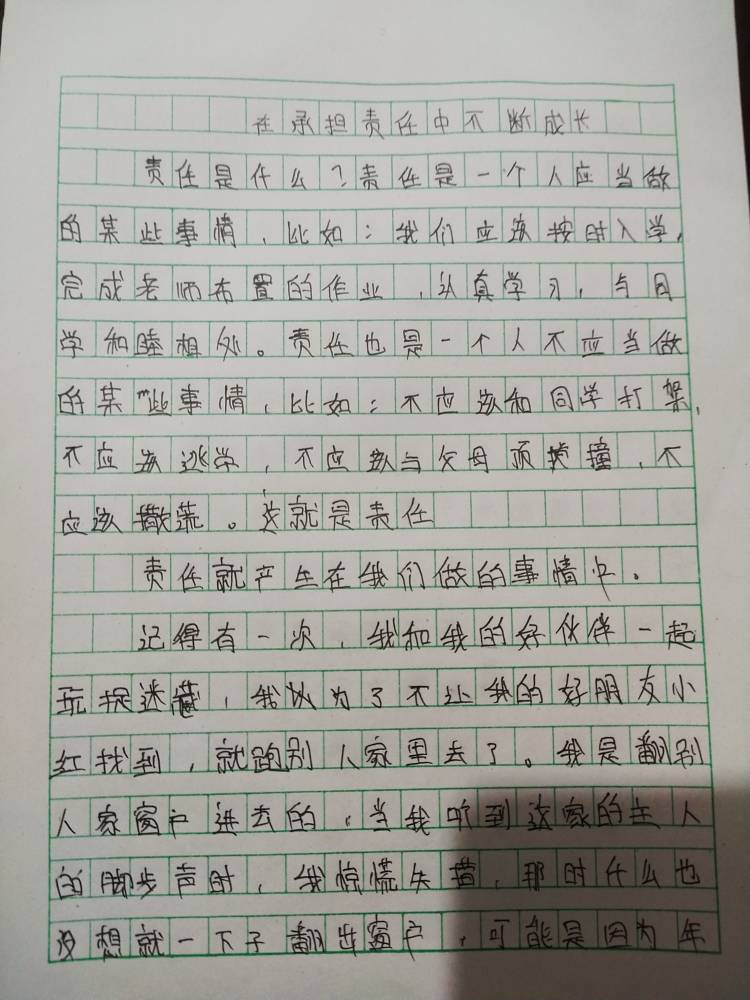 在承担责任中不断成长
责任是什么？责任是一个人应当做
的某些事情，比如：我们应该按时入学，
完成老师布置的作业，认真学习，与同
学和睦相处。责任也是一个人不应当做
的某些事情，比如：不应该和同学打架，
不应该逃学，不应该与父母顶撞，不
应该撒谎。这就是责任
责任就产生在我们做的事情中。
记得有一次，我和我的好伙伴一起
玩捉迷藏，我以为了不让我的好朋友小
红找到，就跑别人家里去了。我是翻别
人家窗户进去的，当我听到这家的主人
的脚步声时，我惊慌失措，那时什么也
没想就一下子翻出窗户，可能是因为年